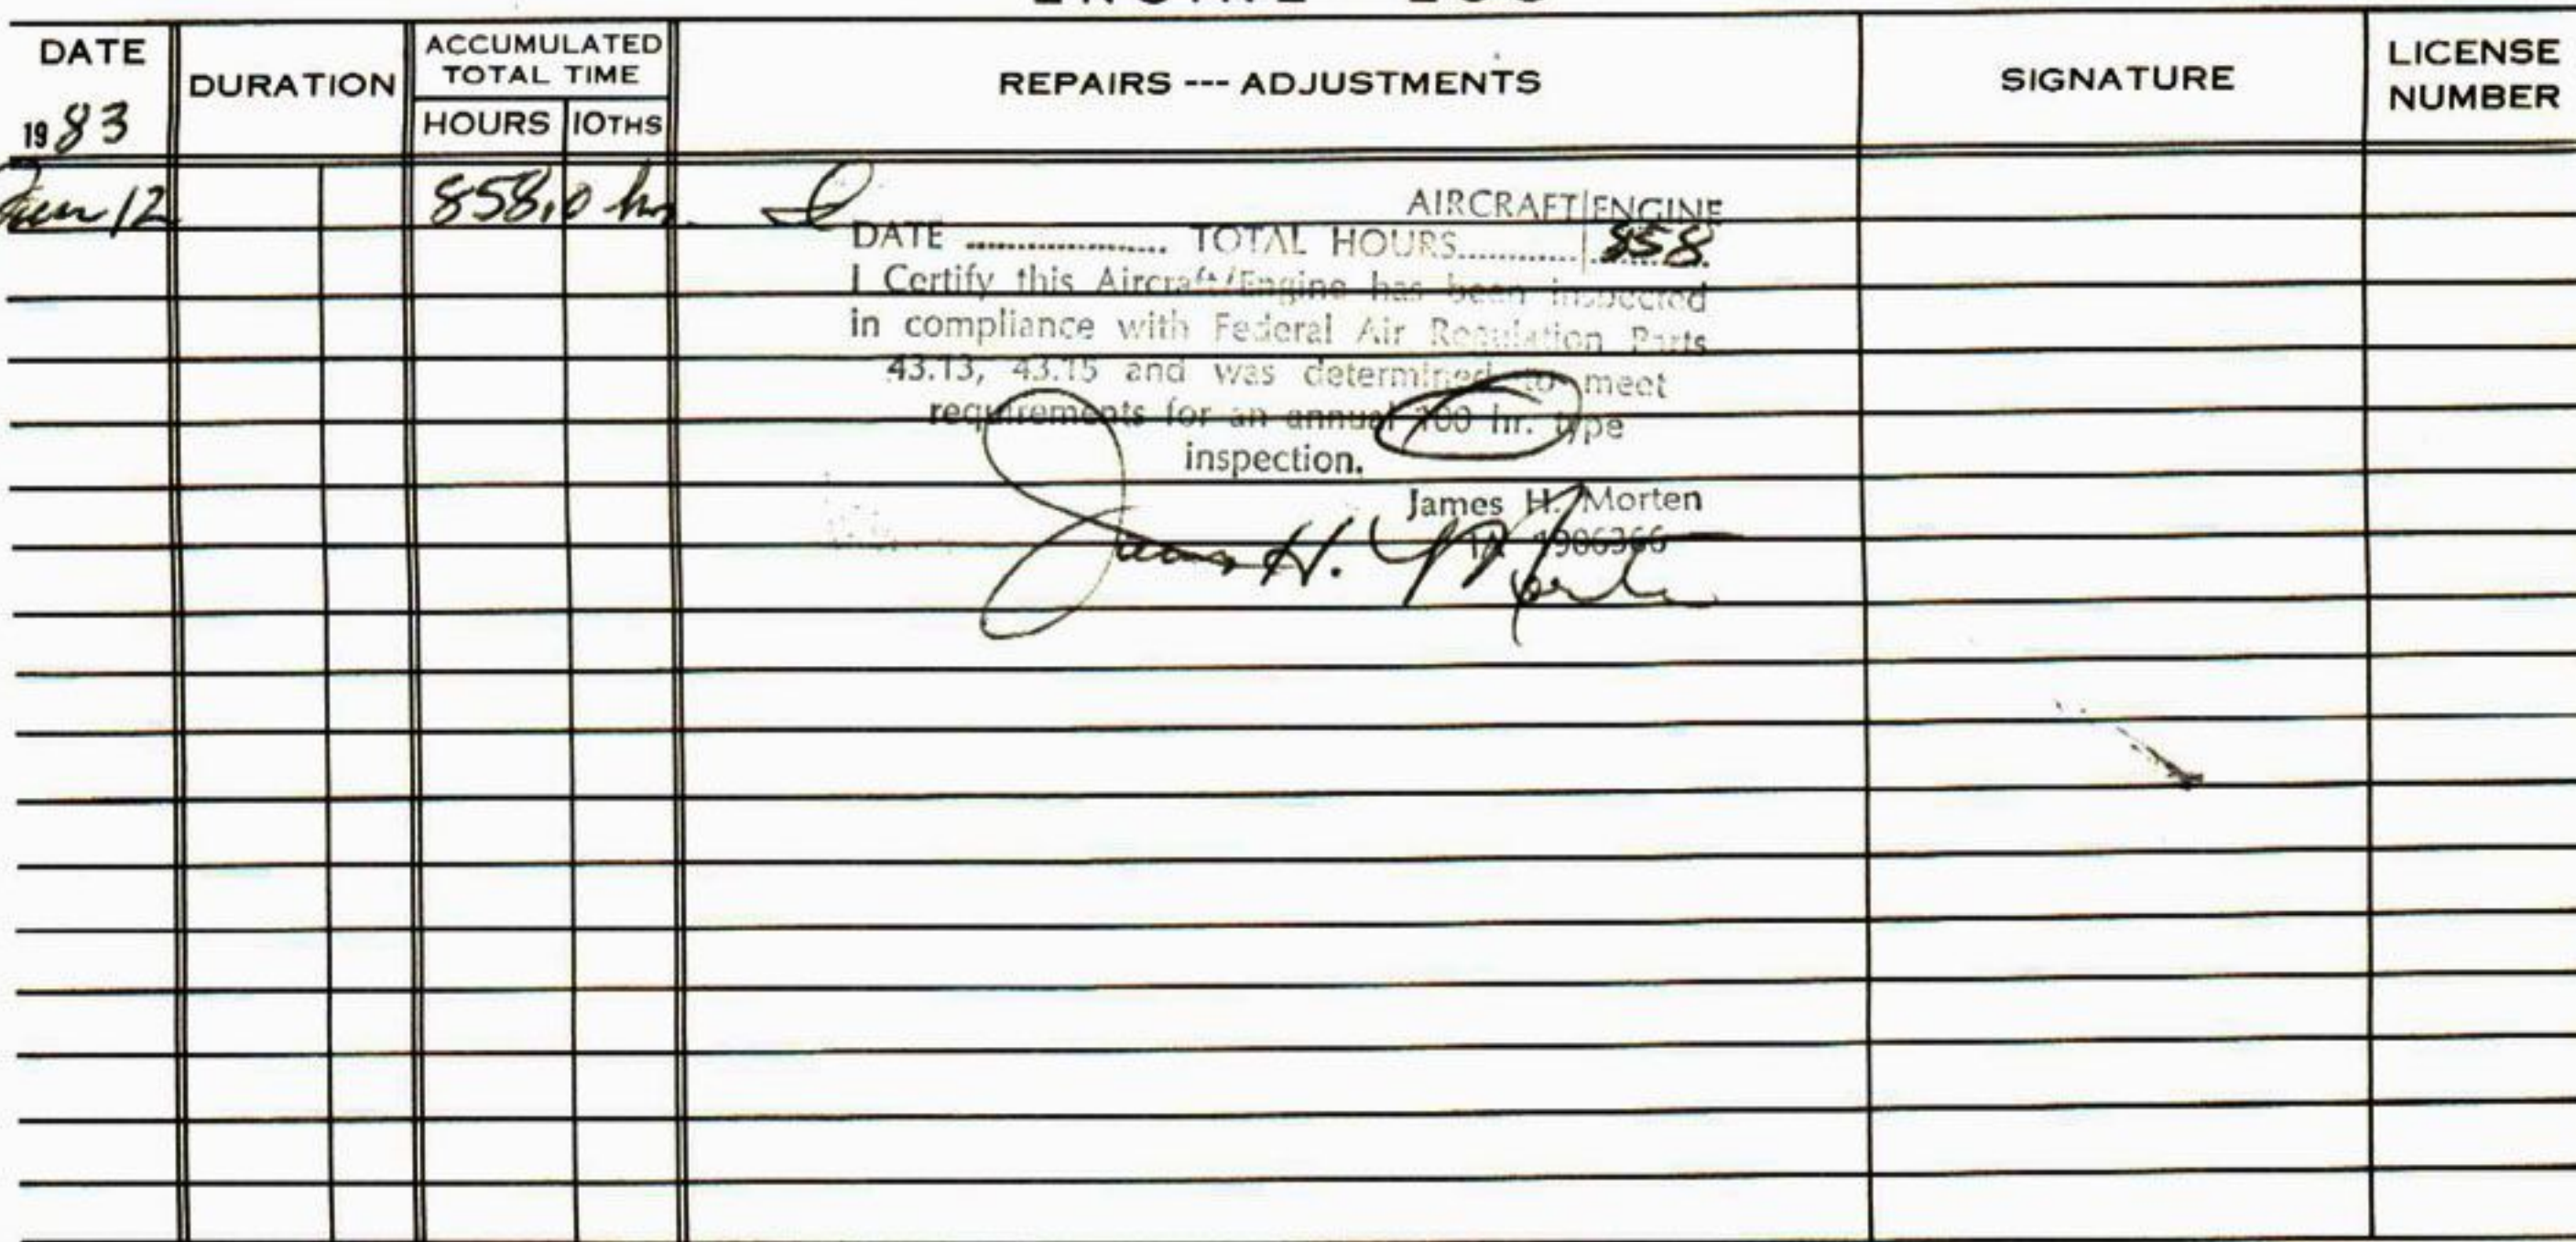 ENGINE LOG
DATE
1983
DURATION
ACCUMULATED
TOTAL TIME
HOURS 10THS
REPAIRS --- ADJUSTMENTS
SIGNATURE
LICENSE
NUMBER
12 858.0 hr. I
AIRCRAFT ENGINE
DATE .................... TOTAL HOURS............ 858
I Certify this Aircraft/Engine has been inspected
in compliance with Federal Air Regulation Parts
43.13, 43.15 and was determined to meet
requirements for an annual 100 hr. type
inspection.
James H. Morten
IA 1906366
James H. Morten